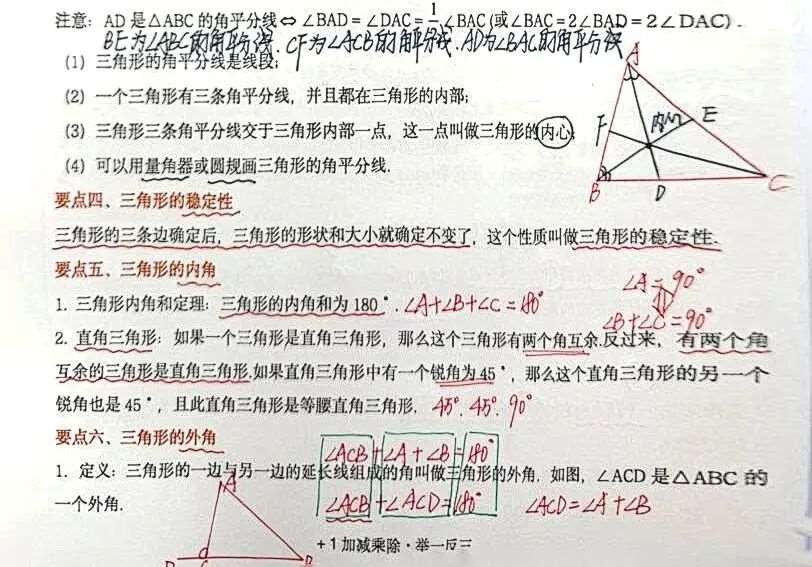 注意：AD 是△ABC 的角平分线⇔∠BAD＝∠DAC＝1/2∠BAC (或∠BAC＝2∠BAD＝2∠DAC)．
BE为∠ABC的角平分线．CF为∠ACB的角平分线．AD为∠BAC的角平分线
(1) 三角形的角平分线是线段；
(2) 一个三角形有三条角平分线，并且都在三角形的内部；
(3) 三角形三条角平分线交于三角形内部一点，这一点叫做三角形的内心；
(4) 可以用量角器或圆规画三角形的角平分线．
A
F
内心
E
B
D
C
要点四、三角形的稳定性
三角形的三条边确定后，三角形的形状和大小就确定不变了，这个性质叫做三角形的稳定性．
要点五、三角形的内角
∠A＝90°
1．三角形内角和定理：三角形的内角和为 180°．∠A+∠B+∠C＝180°
∠B+∠C＝90°
2．直角三角形：如果一个三角形是直角三角形，那么这个三角形有两个角互余.反过来，有两个角
互余的三角形是直角三角形.如果直角三角形中有一个锐角为 45°，那么这个直角三角形的另一个
锐角也是 45°，且此直角三角形是等腰直角三角形．45°．45°．90°
要点六、三角形的外角
∠ACB+∠A+∠B＝180°
1．定义：三角形的一边与另一边的延长线组成的角叫做三角形的外角．如图，∠ACD 是△ABC 的
一个外角．
∠ACB+∠ACD＝180° ∠ACD＝∠A+∠B
A
+1 加减乘除·举一反三